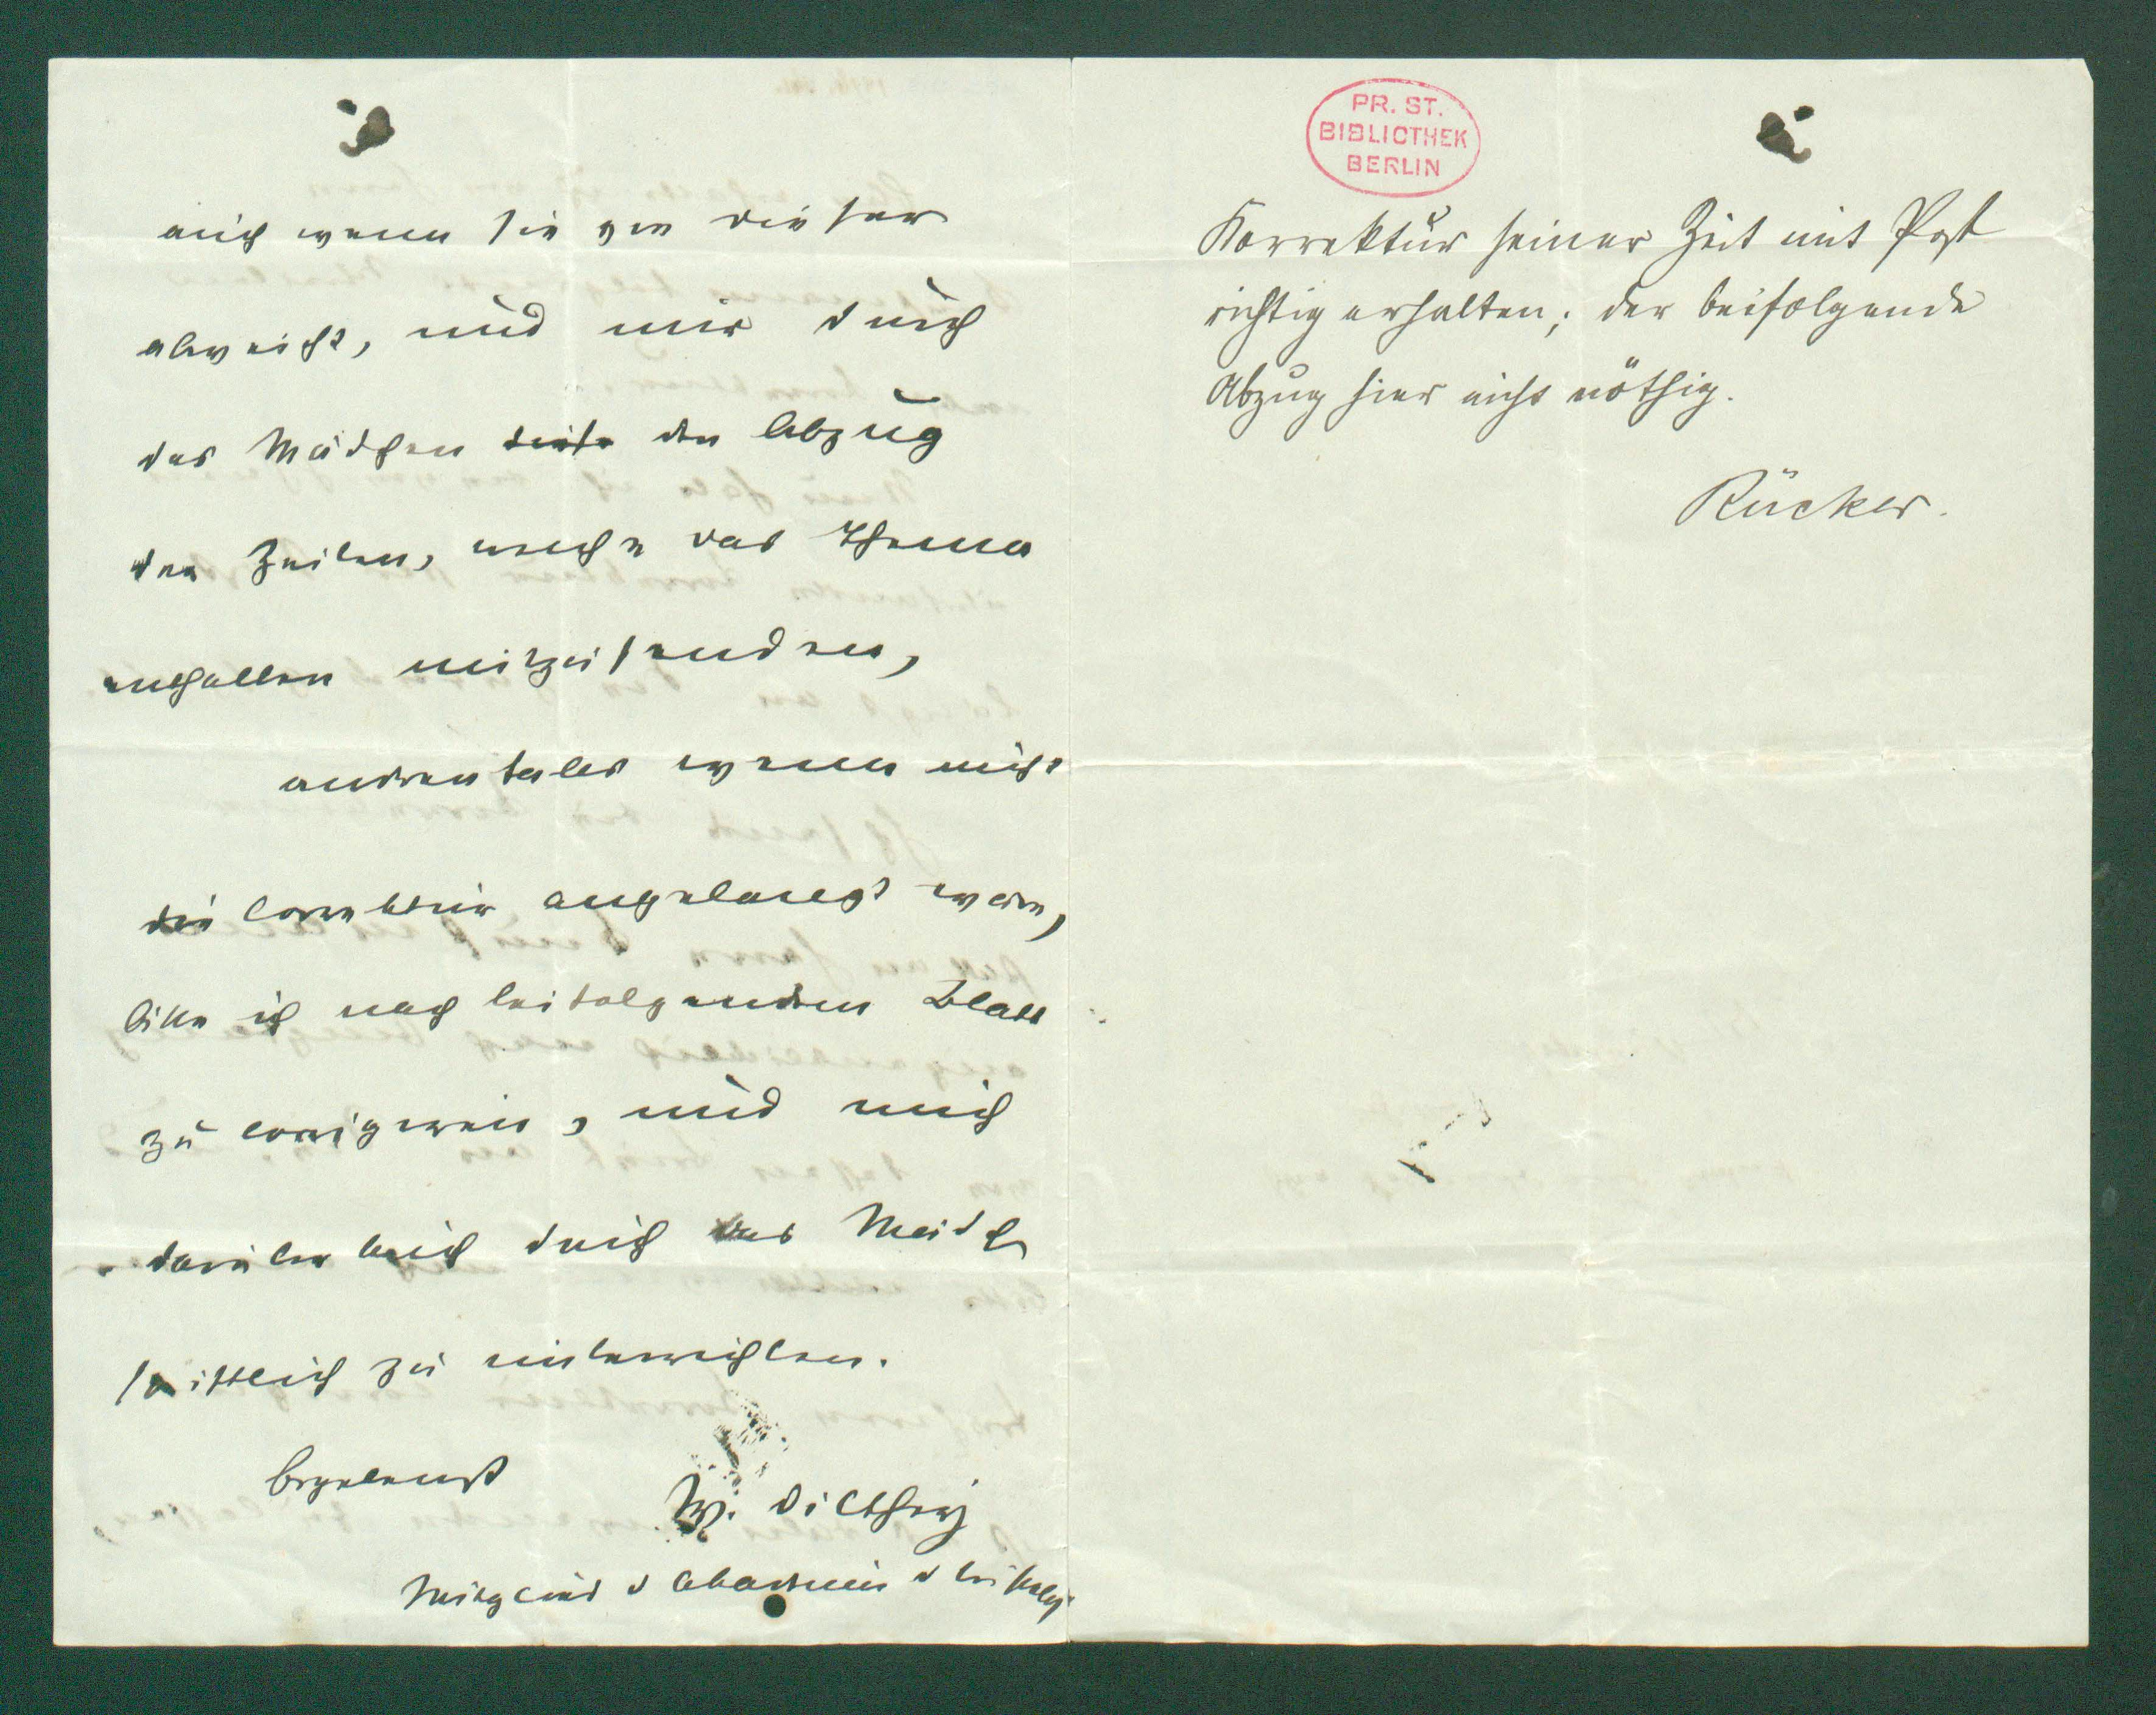 auch wenn sie von dieser
abweicht, und mir durch
das Mädchen den Abzug
der Zeilen, welche das Thema
enthalten mitzusenden,
andrenfalles wenn nicht
die Correktur angelangt wäre,
bitte ich nach beifolgendem Blatt
zu corrigiren, und mich
darüber durch das Mädch
schriftlich zu unterrichten.
Ergebenst
W. Dilthey
Mitglied d Akademie d
PR. ST.
BIBLIOTHEK
BERLIN
Korrektur seiner Zeit mit Post
richtig erhalten; der beifolgende
Abzug hier nicht nöthig.
Rücker.